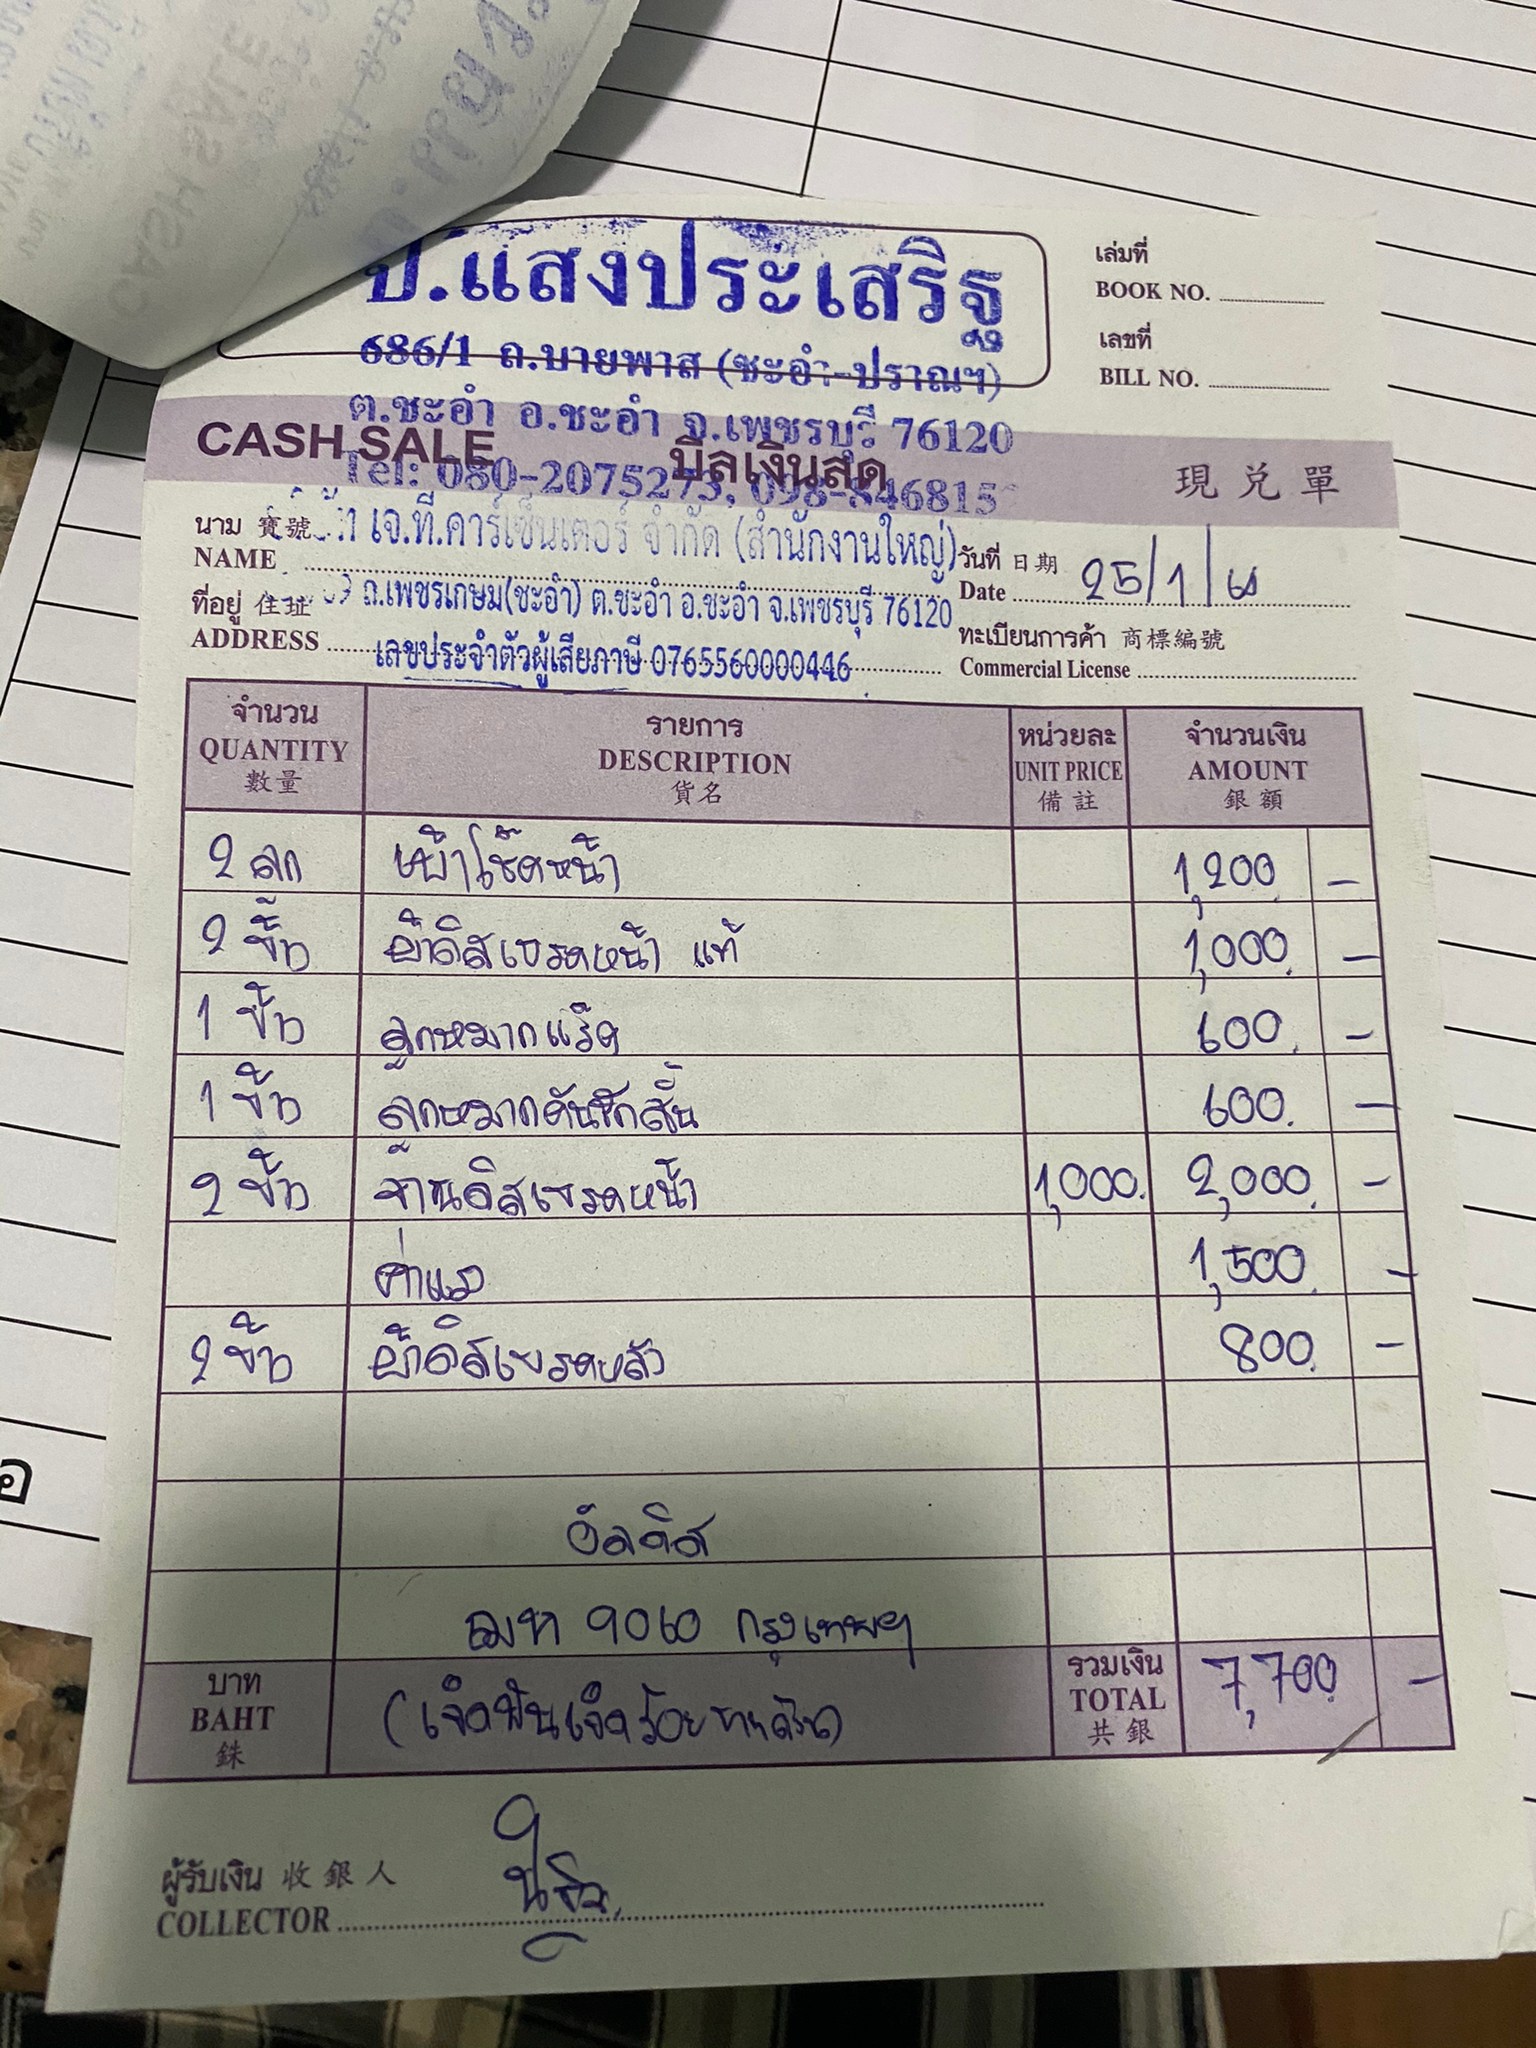 ป.แสงประเสริฐ
686/1 ถ.บายพาส (ชะอำ-ปราณฯ)
ต.ชะอำ อ.ชะอำ จ.เพชรบุรี 76120
Tel: 080-2075273, 098-846815
เล่มที่
BOOK NO.
เลขที่
BILL NO.
CASH SALE บิลเงินสด 現兌單
นาม 寶號 เจ.ที.คาร์เซ็นเตอร์ จำกัด (สำนักงานใหญ่)
NAME
วันที่ 日期
Date 25/1/
ที่อยู่ 住址 ถ.เพชรเกษม(ชะอำ) ต.ชะอำ อ.ชะอำ จ.เพชรบุรี 76120
ADDRESS เลขประจำตัวผู้เสียภาษี 0765560000446
ทะเบียนการค้า 商標編號
Commercial License
จำนวน รายการ หน่วยละ จำนวนเงิน
QUANTITY DESCRIPTION UNIT PRICE AMOUNT
數量 貨名 備註 銀額
2 ลูก เบ้าโช๊คหน้า 1,200 -
2 ชิ้น ผ้าดิสเบรคหน้า แท้ 1,000 -
1 ชิ้น ลูกหมากแร็ค 600 -
1 ชิ้น ลูกหมากคันชักสั้น 600 -
2 ชิ้น จานดิสเบรคหน้า 1,000 2,000 -
ค่าแรง 1,500 -
2 ชิ้น ผ้าดิสเบรคหลัง 800 -
อัลติส
9060 กรุงเทพฯ
บาท
BAHT
銖
(เจ็ดพันเจ็ดร้อยบาทถ้วน)
รวมเงิน
TOTAL
共銀
7,700 -
ผู้รับเงิน 收銀人
COLLECTOR